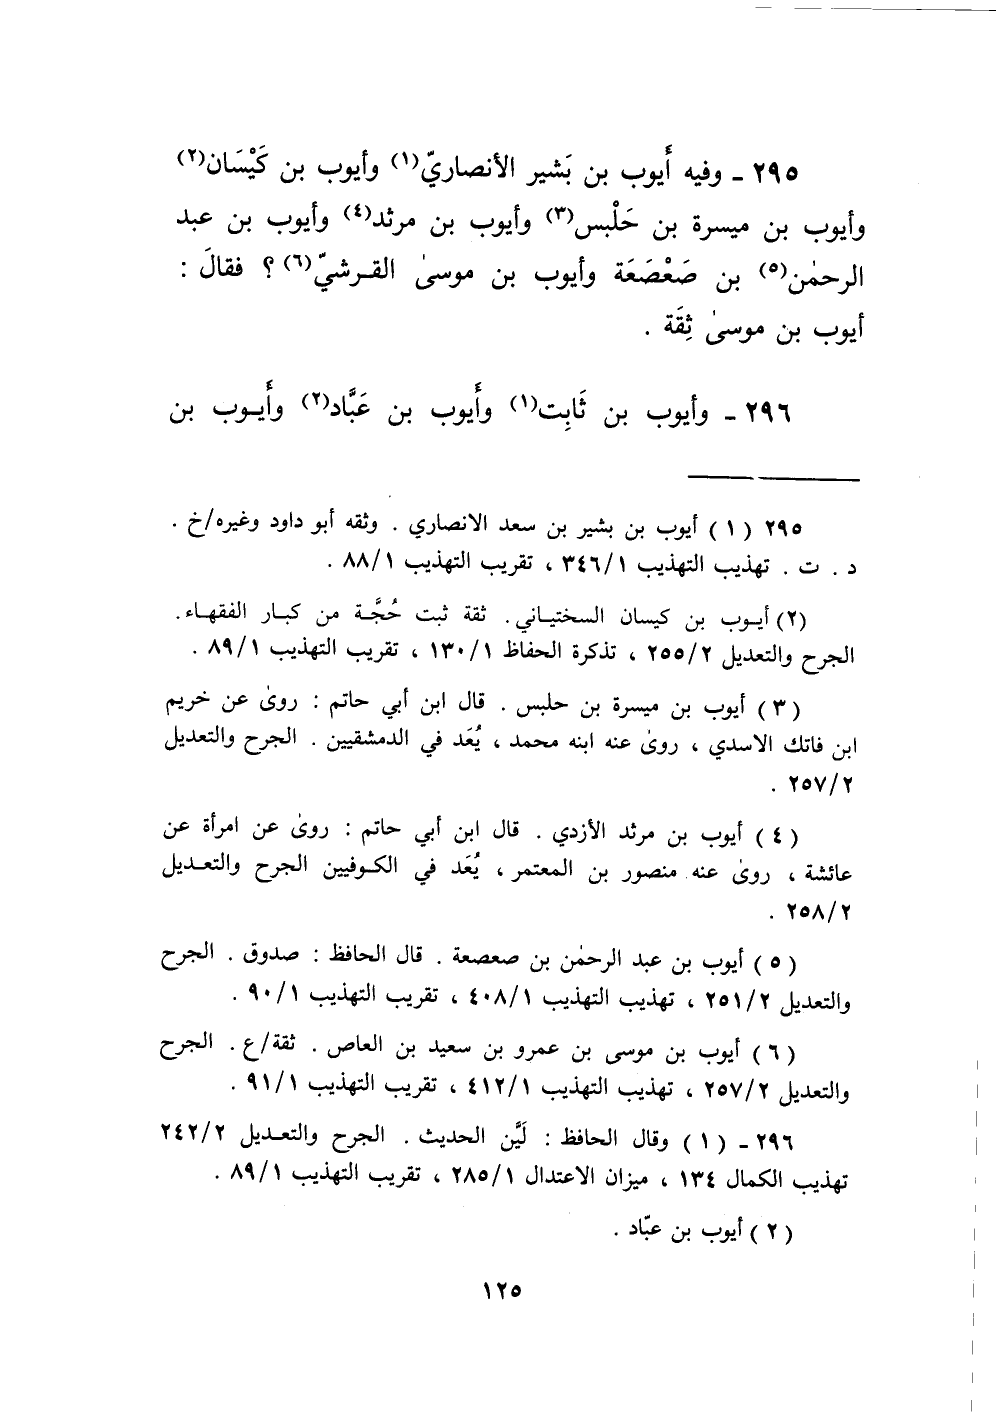 ٢٩٥ ـ وفيه أَيوب بن بَشير الأنصاريّ(١) وأيوب بن كَيْسَان(٢)
وأيوب بن ميسرة بن حَلْبس(٣) وأيوب بن مرثد(٤) وأيوب بن عبد
الرحمٰن(٥) بن صَعْصَعَة وأيوب بن موسىٰ القـرشيّ(٦) ؟ فقالَ :
أيوب بن موسىٰ ثِقَة .
٢٩٦ ـ وأيوب بن ثَابِت(١) وأَيوب بن عَبَّاد(٢) وأَيـوب بن
٢٩٥ (١) أيوب بن بشير بن سعد الانصاري . وثقه أبو داود وغيره/خ .
د . ت . تهذيب التهذيب ٣٤٦/١ ، تقريب التهذيب ٨٨/١ .
(٢) أيـوب بن كيسان السختياني. ثقة ثبت حُجَّـة من كبـار الفقهـاء.
الجرح والتعديل ٢٥٥/٢ ، تذكرة الحفاظ ١٣٠/١ ، تقريب التهذيب ٨٩/١ .
(٣) أيوب بن ميسرة بن حلبس . قال ابن أبي حاتم : روىٰ عن خريم
ابن فاتك الاسدي ، روىٰ عنه ابنه محمد ، يُعَد في الدمشقيين . الجرح والتعديل
٢٥٧/٢ .
(٤) أيوب بن مرثد الأزدي . قال ابن أبي حاتم : روىٰ عن امرأة عن
عائشة ، روىٰ عنه منصور بن المعتمر ، يُعَد في الكـوفيين الجرح والتعـديل
٢٥٨/٢ .
(٥) أيوب بن عبد الرحمٰن بن صعصعة . قال الحافظ : صدوق . الجرح
والتعديل ٢٥١/٢ ، تهذيب التهذيب ٤٠٨/١ ، تقريب التهذيب ٩٠/١ .
(٦) أيوب بن موسى بن عمرو بن سعيد بن العاص . ثقة/ع . الجرح
والتعديل ٢٥٧/٢ ، تهذيب التهذيب ٤١٢/١ ، تقريب التهذيب ٩١/١ .
٢٩٦ ـ (١) وقال الحافظ : لَيَّن الحديث . الجرح والتعـديل ٢٤٢/٢
تهذيب الكمال ١٣٤ ، ميزان الاعتدال ٢٨٥/١ ، تقريب التهذيب ٨٩/١ .
(٢) أيوب بن عبّاد .
١٢٥